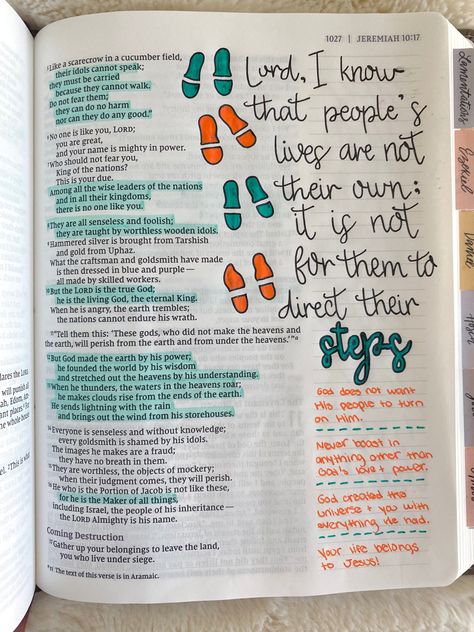 1027 | JEREMIAH 10:17
⁵Like a scarecrow in a cucumber field,
their idols cannot speak;
they must be carried
because they cannot walk.
Do not fear them;
they can do no harm
nor can they do any good.”
⁶No one is like you, LORD;
you are great,
and your name is mighty in power.
⁷Who should not fear you,
King of the nations?
This is your due.
Among all the wise leaders of the nations
and in all their kingdoms,
there is no one like you.
⁸They are all senseless and foolish;
they are taught by worthless wooden idols.
⁹Hammered silver is brought from Tarshish
and gold from Uphaz.
What the craftsman and goldsmith have made
is then dressed in blue and purple—
all made by skilled workers.
¹⁰But the LORD is the true God;
he is the living God, the eternal King.
When he is angry, the earth trembles;
the nations cannot endure his wrath.
¹¹“Tell them this: ‘These gods, who did not make the heavens and
the earth, will perish from the earth and from under the heavens.’”ᵃ
¹²But God made the earth by his power;
he founded the world by his wisdom
and stretched out the heavens by his understanding.
¹³When he thunders, the waters in the heavens roar;
he makes clouds rise from the ends of the earth.
He sends lightning with the rain
and brings out the wind from his storehouses.
¹⁴Everyone is senseless and without knowledge;
every goldsmith is shamed by his idols.
The images he makes are a fraud;
they have no breath in them.
¹⁵They are worthless, the objects of mockery;
when their judgment comes, they will perish.
¹⁶He who is the Portion of Jacob is not like these,
for he is the Maker of all things,
including Israel, the people of his inheritance—
the LORD Almighty is his name.
Coming Destruction
¹⁷Gather up your belongings to leave the land,
you who live under siege.
ᵃ11 The text of this verse is in Aramaic.
Lord, I know
that people's
lives are not
their own;
it is not
for them to
direct their
steps
God does not want
His people to turn
on Him.
Never boast in
anything other than
God's love + power.
God created the
universe + you with
everything He had.
Your life belongs
to Jesus!
Lamentations
Ezekiel
Daniel
Hosea